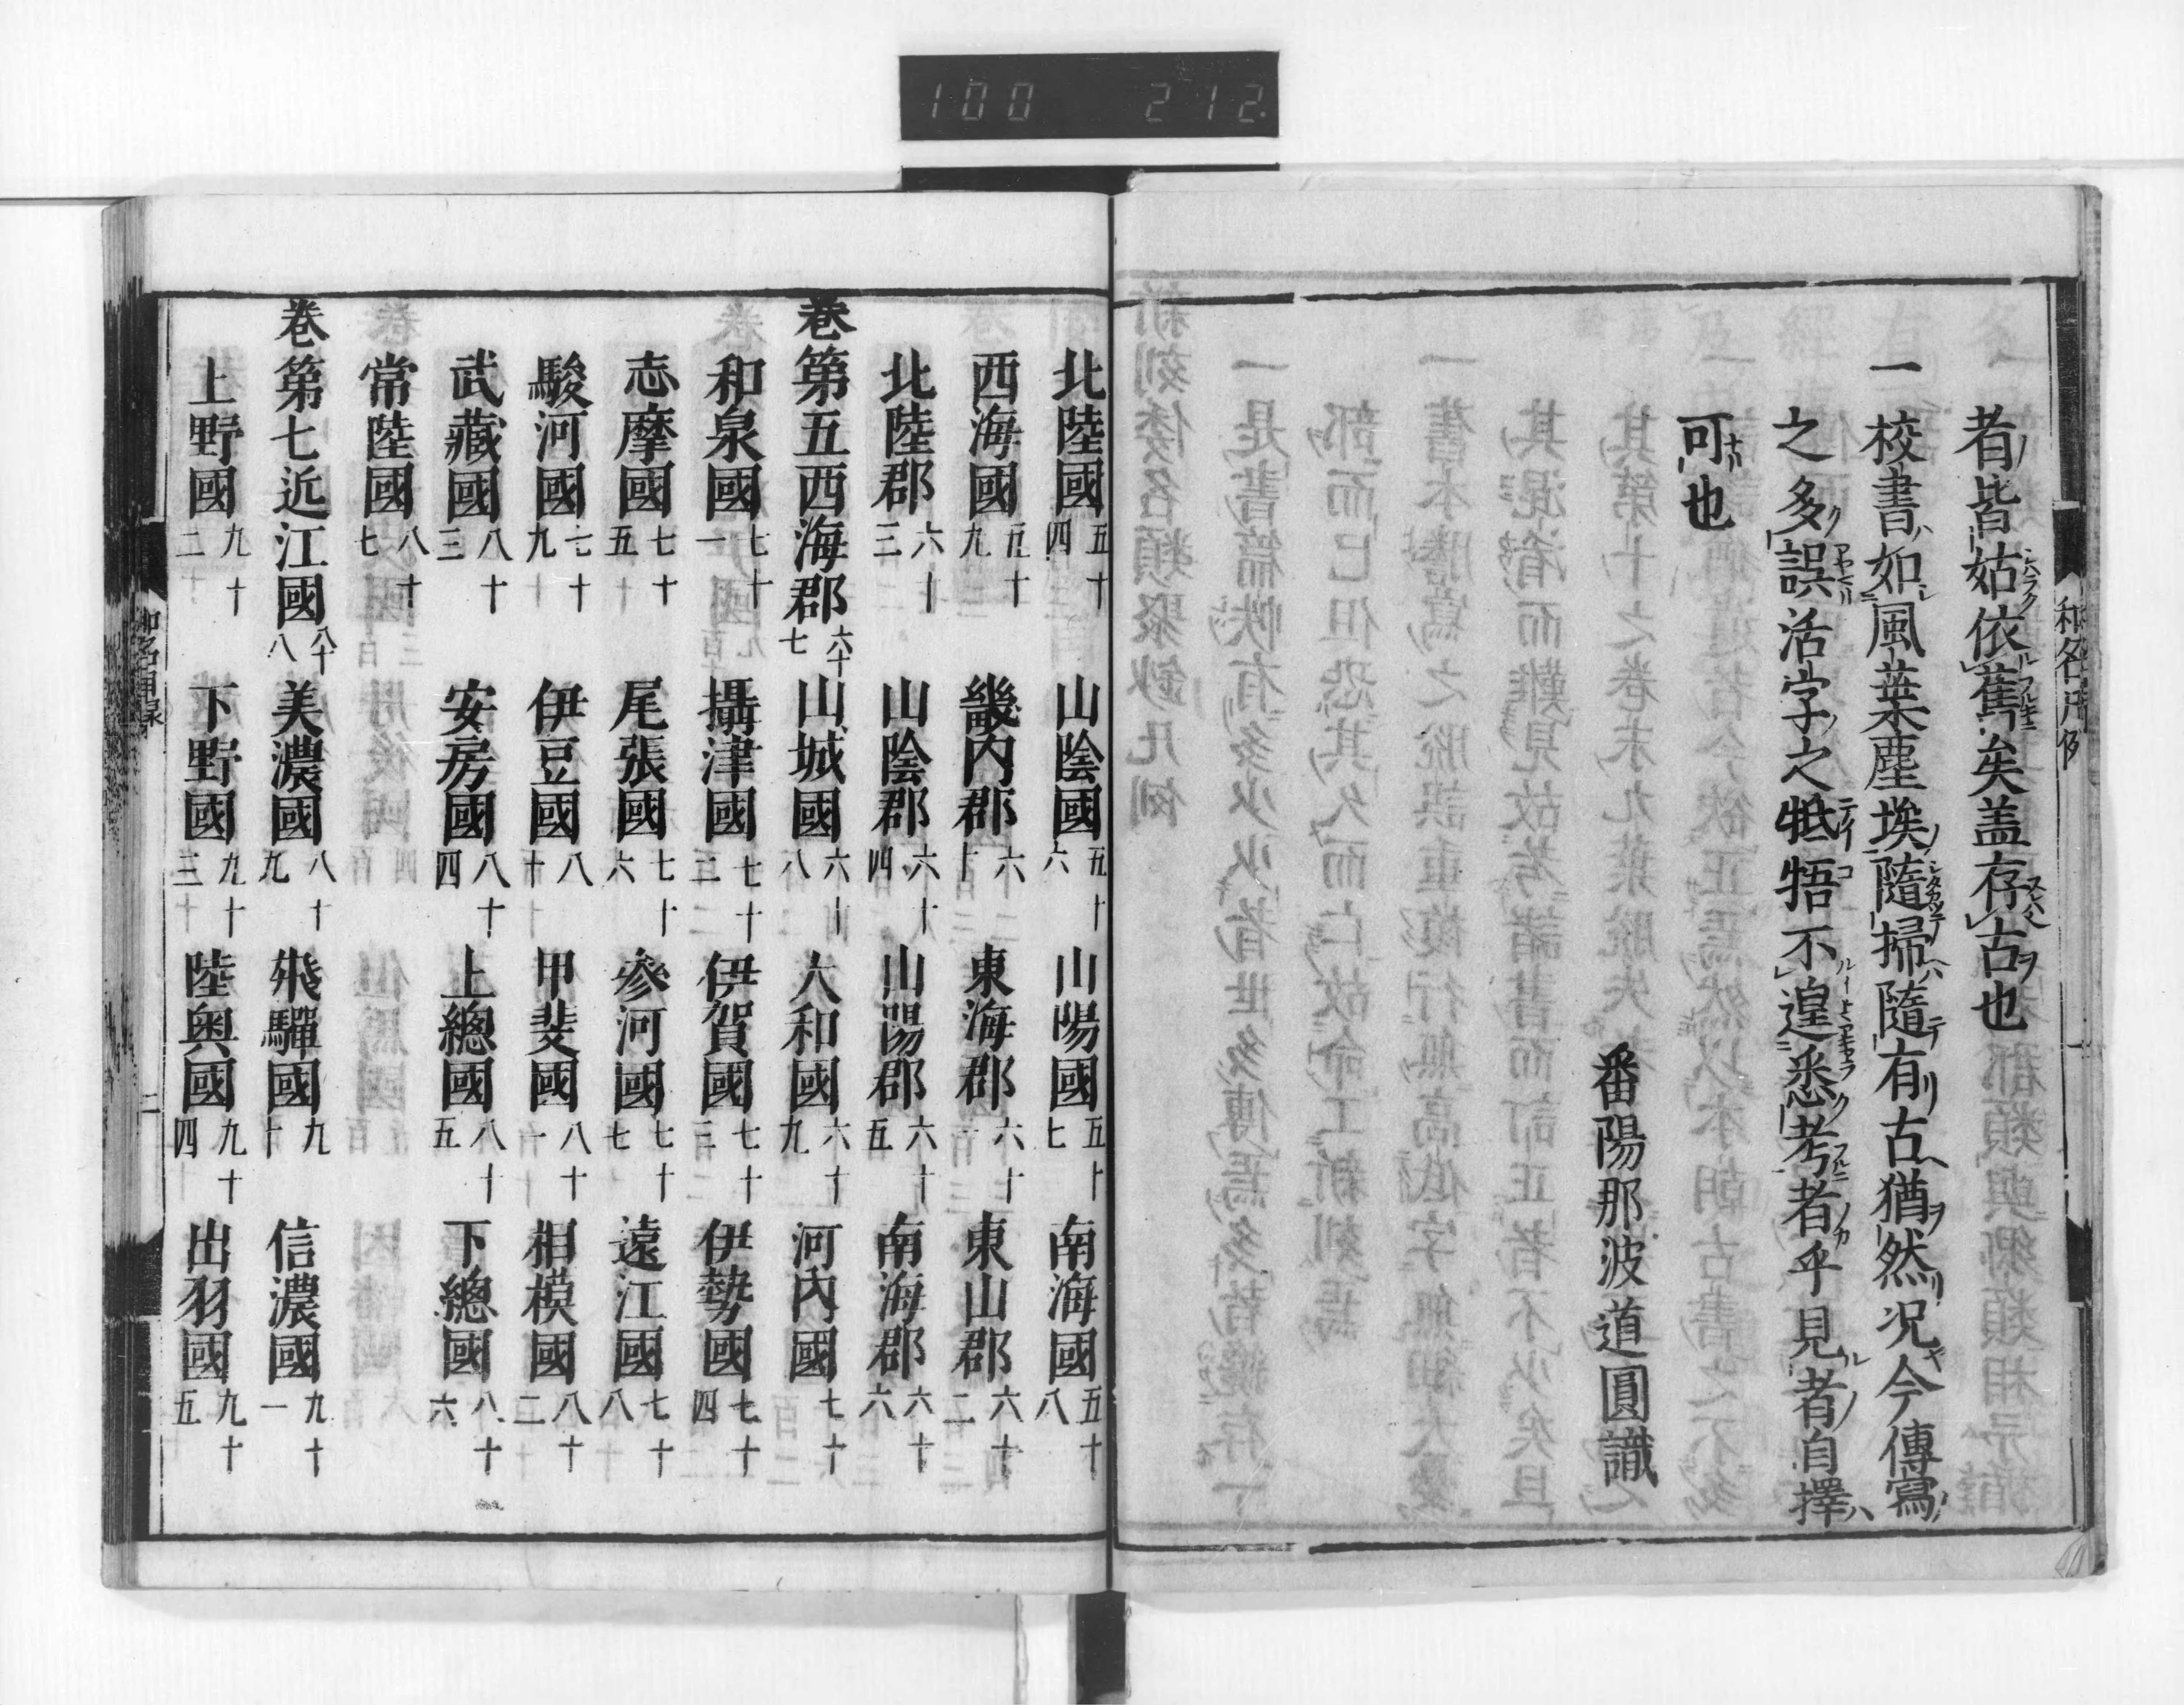 100 212.
者皆姑依舊矣盖存古也
一校書如風葉塵埃隨掃隨有古猶然况今傳寫
之多誤活字之牴牾不遑悉考者乎見者自擇
可也
番陽那波道圓識
北陸國五十四 山陰國五十六 山陽國五十七 南海國五十八
西海國五十九 畿内郡六十 東海郡六十一 東山郡六十二
北陸郡六十三 山陰郡六十四 山陽郡六十五 南海郡六十六
卷第五西海郡六十七 山城國六十八 大和國六十九 河内國七十
和泉國七十一 攝津國七十二 伊賀國七十三 伊勢國七十四
志摩國七十五 尾張國七十六 參河國七十七 遠江國七十八
駿河國七十九 伊豆國八十 甲斐國八十一 相模國八十二
武藏國八十三 安房國八十四 上總國八十五 下總國八十六
常陸國八十七
卷第七近江國八十八 美濃國八十九 飛驒國九十 信濃國九十一
上野國九十二 下野國九十三 陸奧國九十四 出羽國九十五
和名目录
二